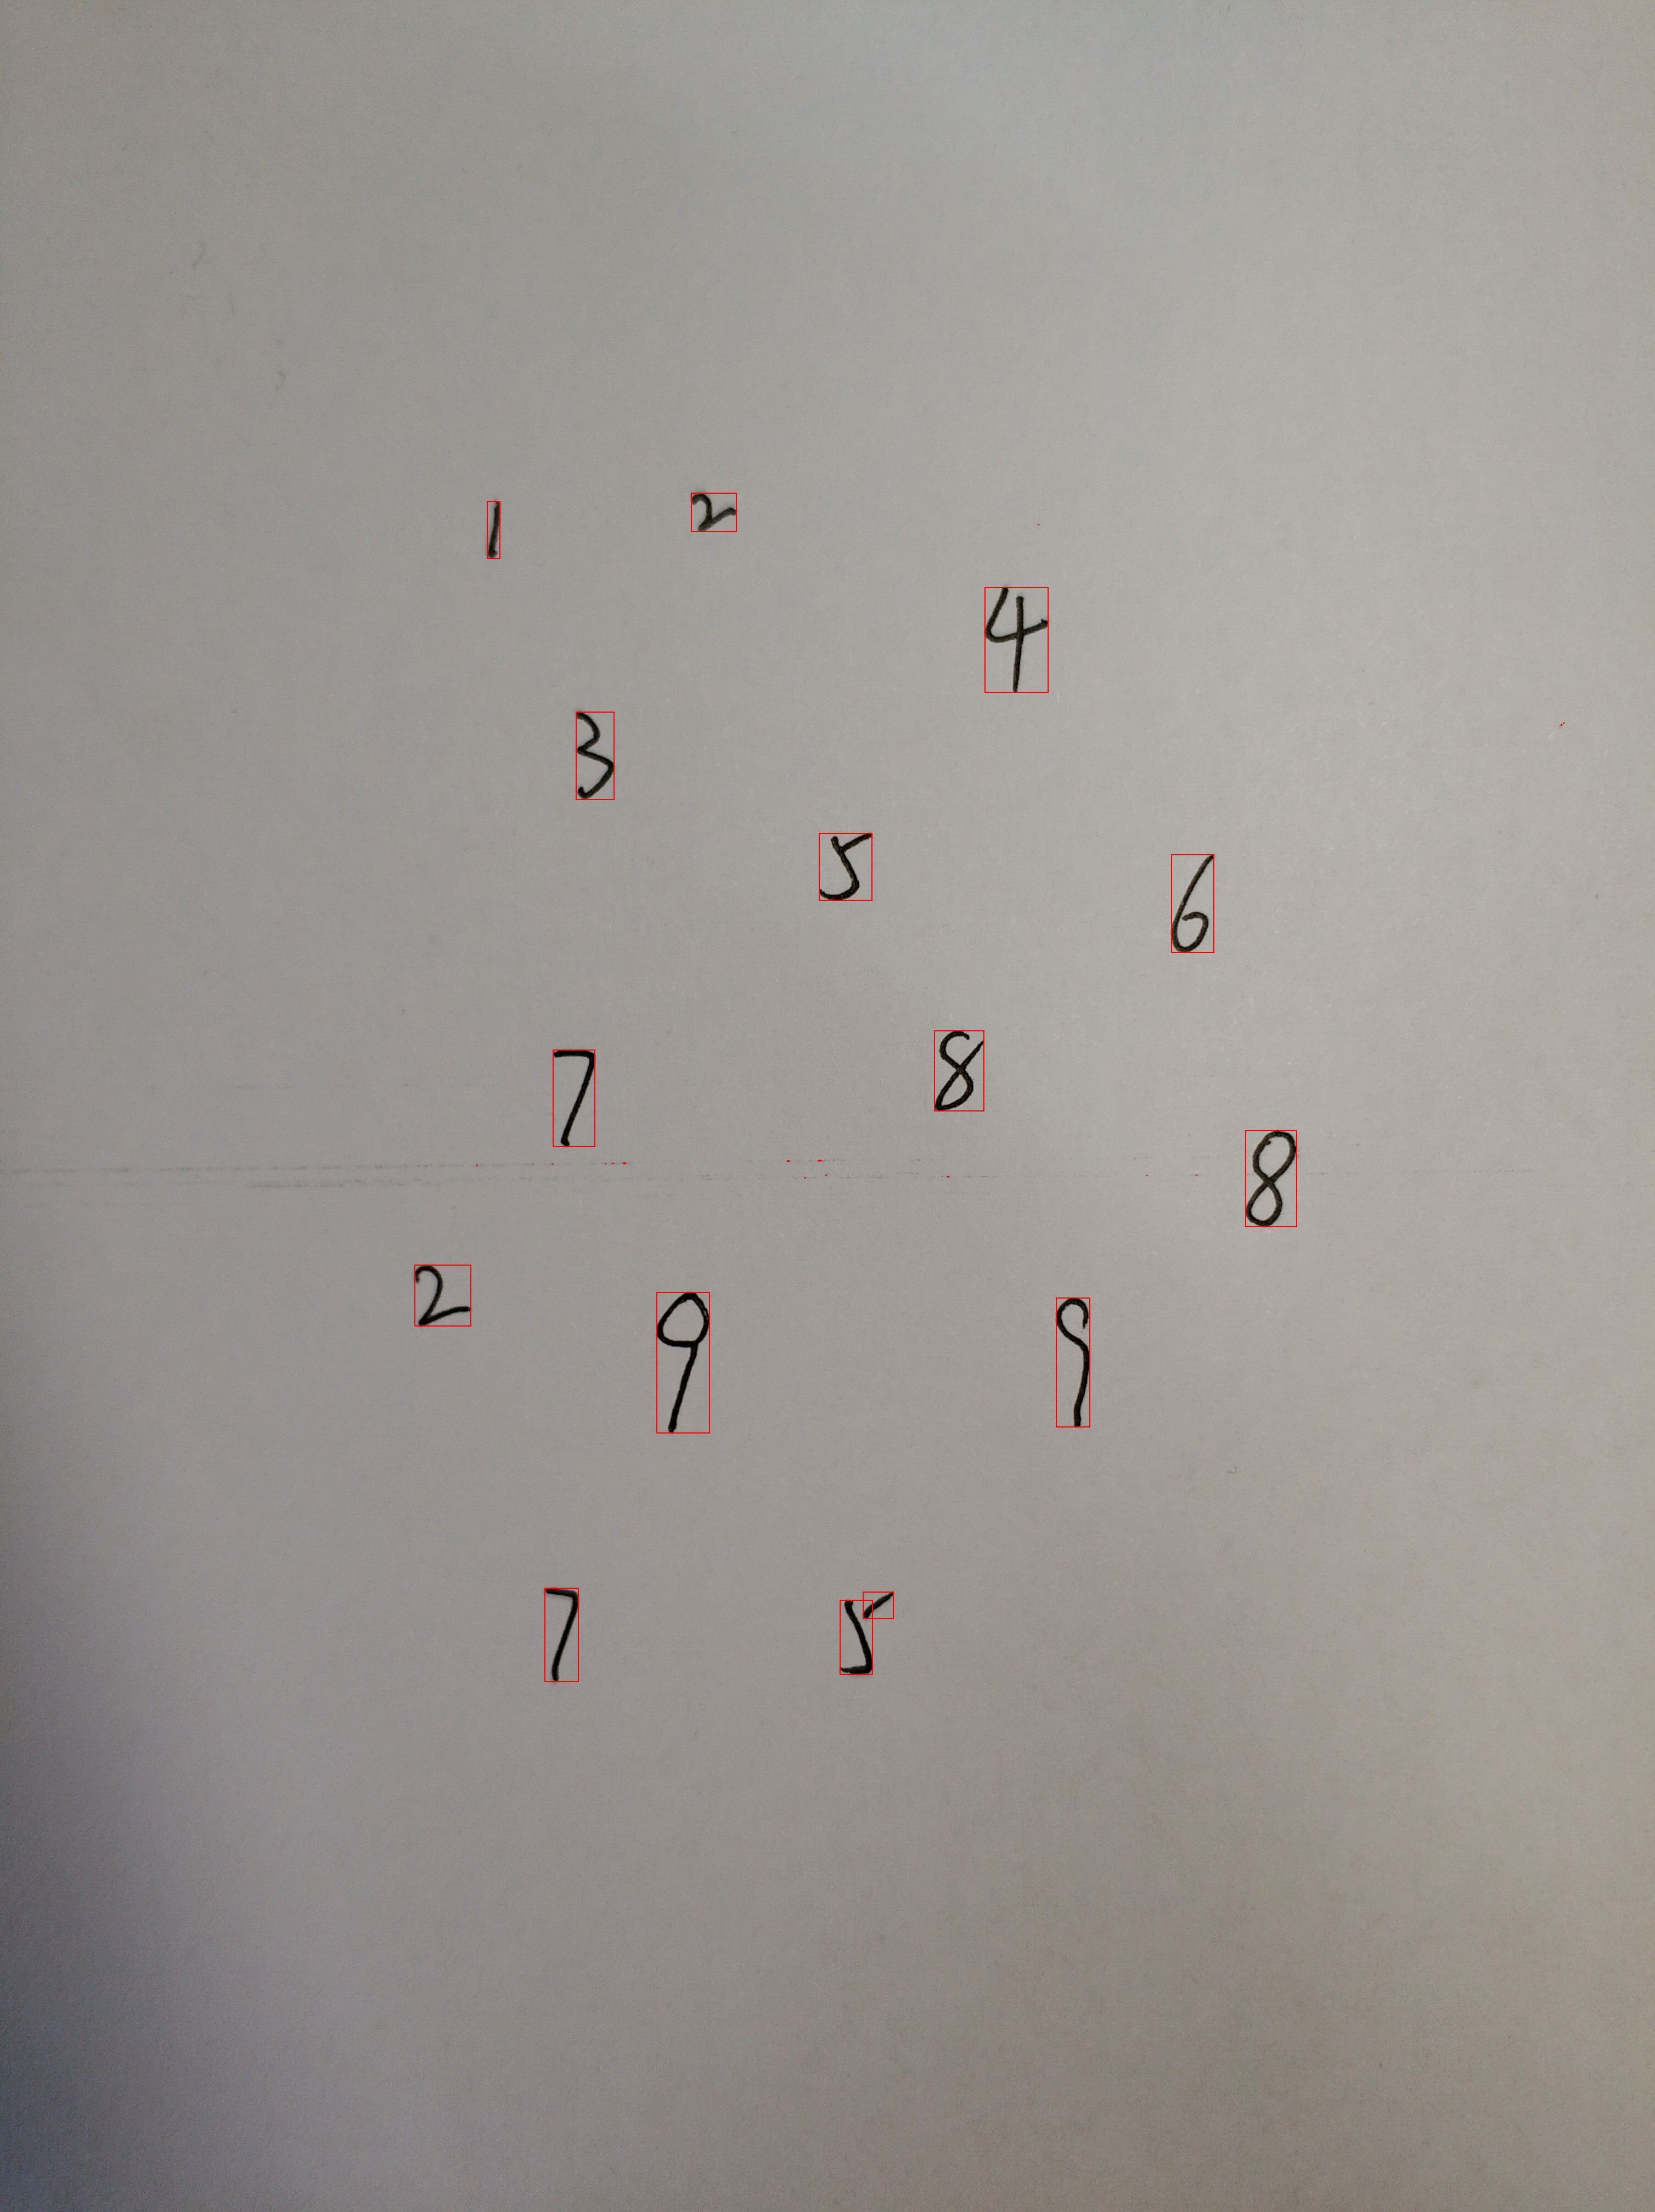 1 2
4
3
5 6
7 8
8
2 9 9
7 5